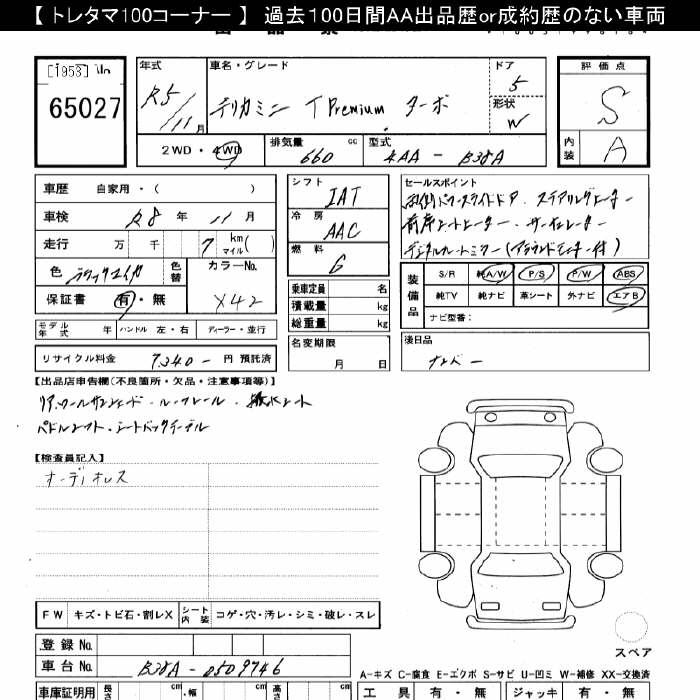 【 トレタマ100コーナー 】 過去100日間AA出品歴or成約歴のない車両
[1953]
65027
年式
R5/11月
車名・グレード
デリカミニ T Premium ターボ
ドア
5
形状
W
評価点
S
内装
A
2WD・4WD
排気量
660 cc
型式
4AA - B38A
車歴 自家用・( )
車検 R8 年 11 月
走行 万 千 7 km マイル( )
色 ブラックマイカ
色替
カラーNo.
X42
保証書 有・無
シフト
IAT
冷房
AAC
燃料
G
乗車定員 名
積載量 kg
総重量 kg
セールスポイント
両側パワースライドドア ステアリングヒーター
前席シートヒーター・サーキュレーター
デジタルルームミラー(アラウンドモニター付)
装備品
S/R 純A/W P/S P/W ABS
純TV 純ナビ 革シート 外ナビ エアB
ナビ型番:
モデル年式 年 ハンドル 左・右 ディーラー・並行
名変期限
月 日
後日品
ナンバー
リサイクル料金 7,340- 円 預託済
【出品店申告欄(不良箇所・欠品・注意事項等)】
リアロールサンシェード・ルーフレール・撥水シート
パドルシフト・シートバックテーブル
【検査員記入】
オーディオレス
FW キズ・トビ石・割レX シート内装 コゲ・穴・汚レ・シミ・破レ・スレ
登録No.
車台No. B38A-0509746
スペア
A-キズ C-腐食 E-エクボ S-サビ U-凹ミ W-補修 XX-交換済
車庫証明用 長さ cm 幅 cm 高さ cm
工具 有・無 ジャッキ 有・無